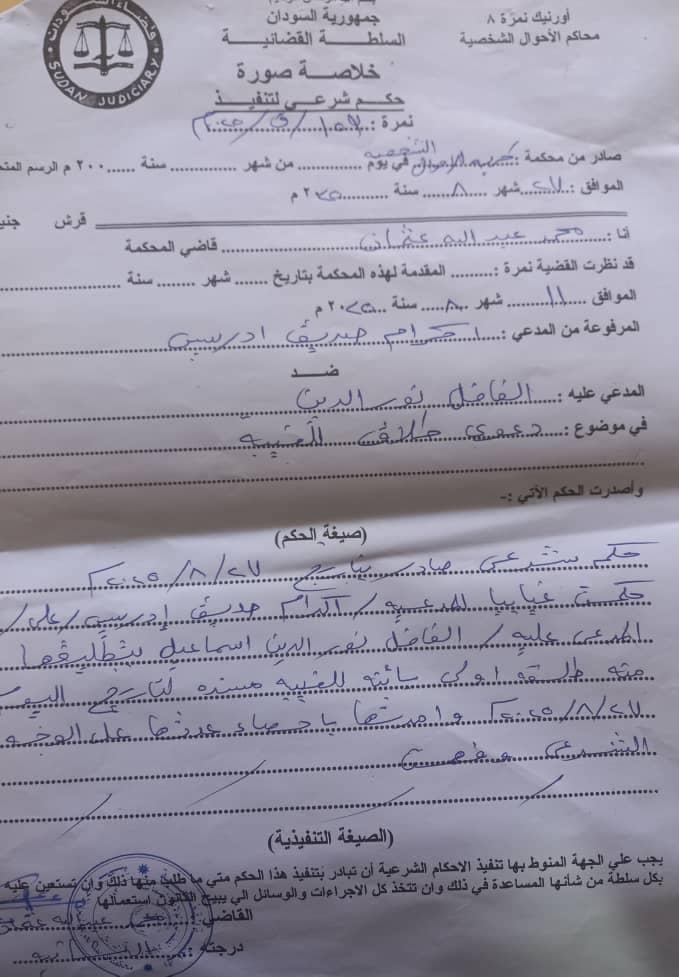 أورنيك نمرة ٨
محاكم الأحوال الشخصية
جمهورية السودان
السلطة القضائية
SUDAN JUDICIARY
خلاصة صورة
حكم شرعي لتنفيذ
نمرة :
صادر من محكمة : الشخصية في يوم من شهر سنة ٢٠٠ م الرسم
الموافق : ٢٧ شهر ٨ سنة ٢٠٢٥ م
قرش
أنا : محمد عبد الله عثمان قاضي المحكمة
قد نظرت القضية نمرة : المقدمة لهذه المحكمة بتاريخ شهر سنة
الموافق ١١ شهر ٨ سنة ٢٠٢٥ م
المرفوعة من المدعي : اكرام صديق ادريس
ضد
المدعي عليه : الفاضل نور الدين
في موضوع : دعوى طلاق للغيبة
وأصدرت الحكم الآتي :-
(صيغة الحكم)
حكم شرعي صادر بتاريخ ٢٠٢٥/٨/٢٧
حكمت غيابيا للمدعية / اكرام صديق إدريس / على /
المدعى عليه / الفاضل نور الدين اسماعيل بتطليقها
منه طلقة اولى بائنة للغيبة مسنده لتاريخ اليوم
٢٠٢٥/٨/٢٧ وامرتها باحصاء عدتها على الوجه
الشرعي
(الصيغة التنفيذية)
يجب علي الجهة المنوط بها تنفيذ الاحكام الشرعية أن تبادر بتنفيذ هذا الحكم متي ما طلب منها ذلك وان تستعين عليه
بكل سلطة من شأنها المساعدة في ذلك وان تتخذ كل الاجراءات والوسائل التي يبيح القانون استعمالها
القاضي :
درجته :